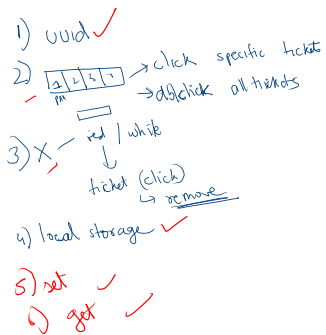 1) uuid
2) 1 2 3 → click specific tickets
→ dblclick all tickets
3) X - red / white
ticket (click)
↳ remove
4) local storage
5) set
6) get